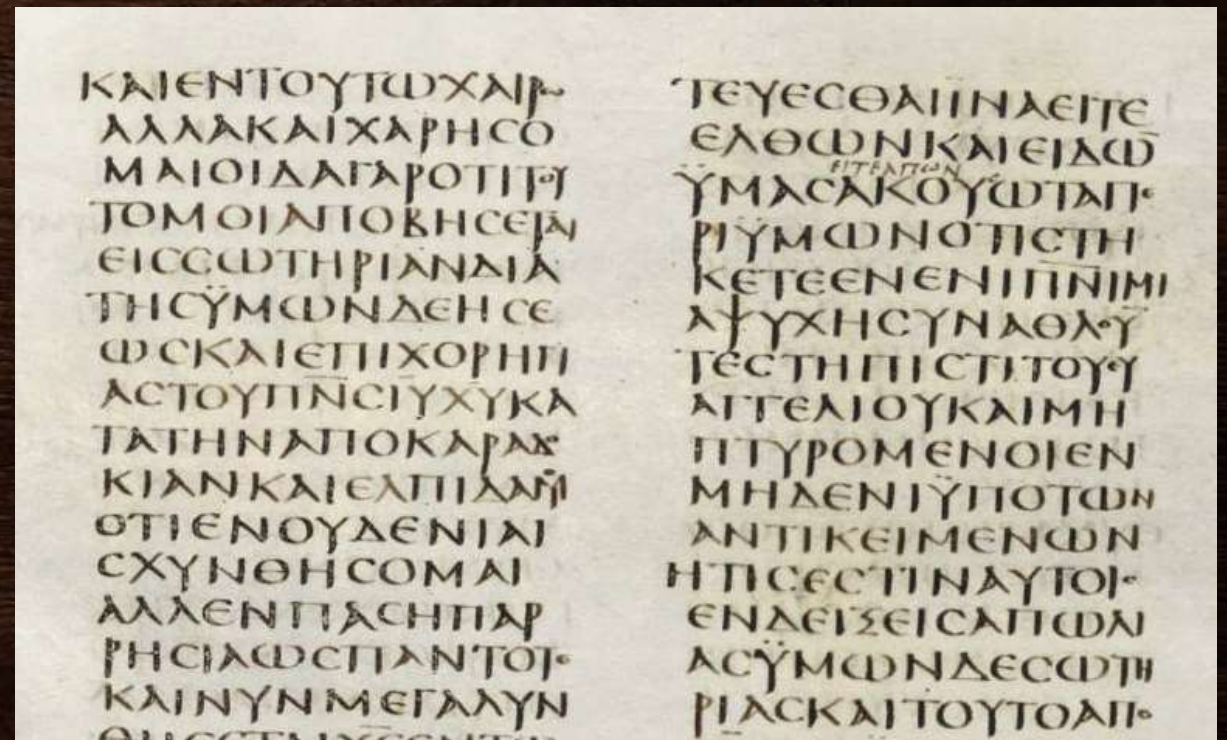 ΚΑΙΕΝΤΟΥΤΩΧΑΙΡω
ΑΛΛΑΚΑΙΧΑΡΗCΟ
ΜΑΙΟΙΔΑΓΑΡΟΤΙΤΟΥ
ΤΟΜΟΙΑΠΟΒΗCΕΤΑΙ
ΕΙCCΩΤΗΡΙΑΝΔΙΑ
ΤΗCΫΜΩΝΔΕΗCΕ
ΩCΚΑΙΕΠΙΧΟΡΗΓΙ
ΑCΤΟΥΠΝ̅CΙΥ̅ΧΥ̅ΚΑ
ΤΑΤΗΝΑΠΟΚΑΡΑΔΟ
ΚΙΑΝΚΑΙΕΛΠΙΔΑΜΟΥ
ΟΤΙΕΝΟΥΔΕΝΙΑΙ
CΧΥΝΘΗCΟΜΑΙ
ΑΛΛΕΝΠΑCΗΠΑΡ
ΡΗCΙΑΩCΠΑΝΤΟΤΕ
ΚΑΙΝΥΝΜΕΓΑΛΥΝ
ΘΗCΕΤΑΙΧCΕΝΤΩ
ΤΕΥΕCΘΑΙΙΝΑΕΙΤΕ
ΕΛΘΩΝΚΑΙΕΙΔΩ̅
ΫΜΑCΑΚΟΥΩΤΑΠΕ
ΡΙΫΜΩΝΟΤΙCΤΗ
ΚΕΤΕΕΝΕΝΙΠΝ̅ΙΜΙ
ΑΨΥΧΗCΥΝΑΘΛΟΥ
ΤΕCΤΗΠΙCΤΙΤΟΥΕΥ
ΑΓΓΕΛΙΟΥΚΑΙΜΗ
ΠΤΥΡΟΜΕΝΟΙΕΝ
ΜΗΔΕΝΙΫΠΟΤΩΝ
ΑΝΤΙΚΕΙΜΕΝΩΝ
ΗΤΙCΕCΤΙΝΑΥΤΟΙC
ΕΝΔΕΙΞΕΙCΑΠΩΛΙ
ΑCΫΜΩΝΔΕCΩΤΗ
ΡΙΑCΚΑΙΤΟΥΤΟΑΠΟ